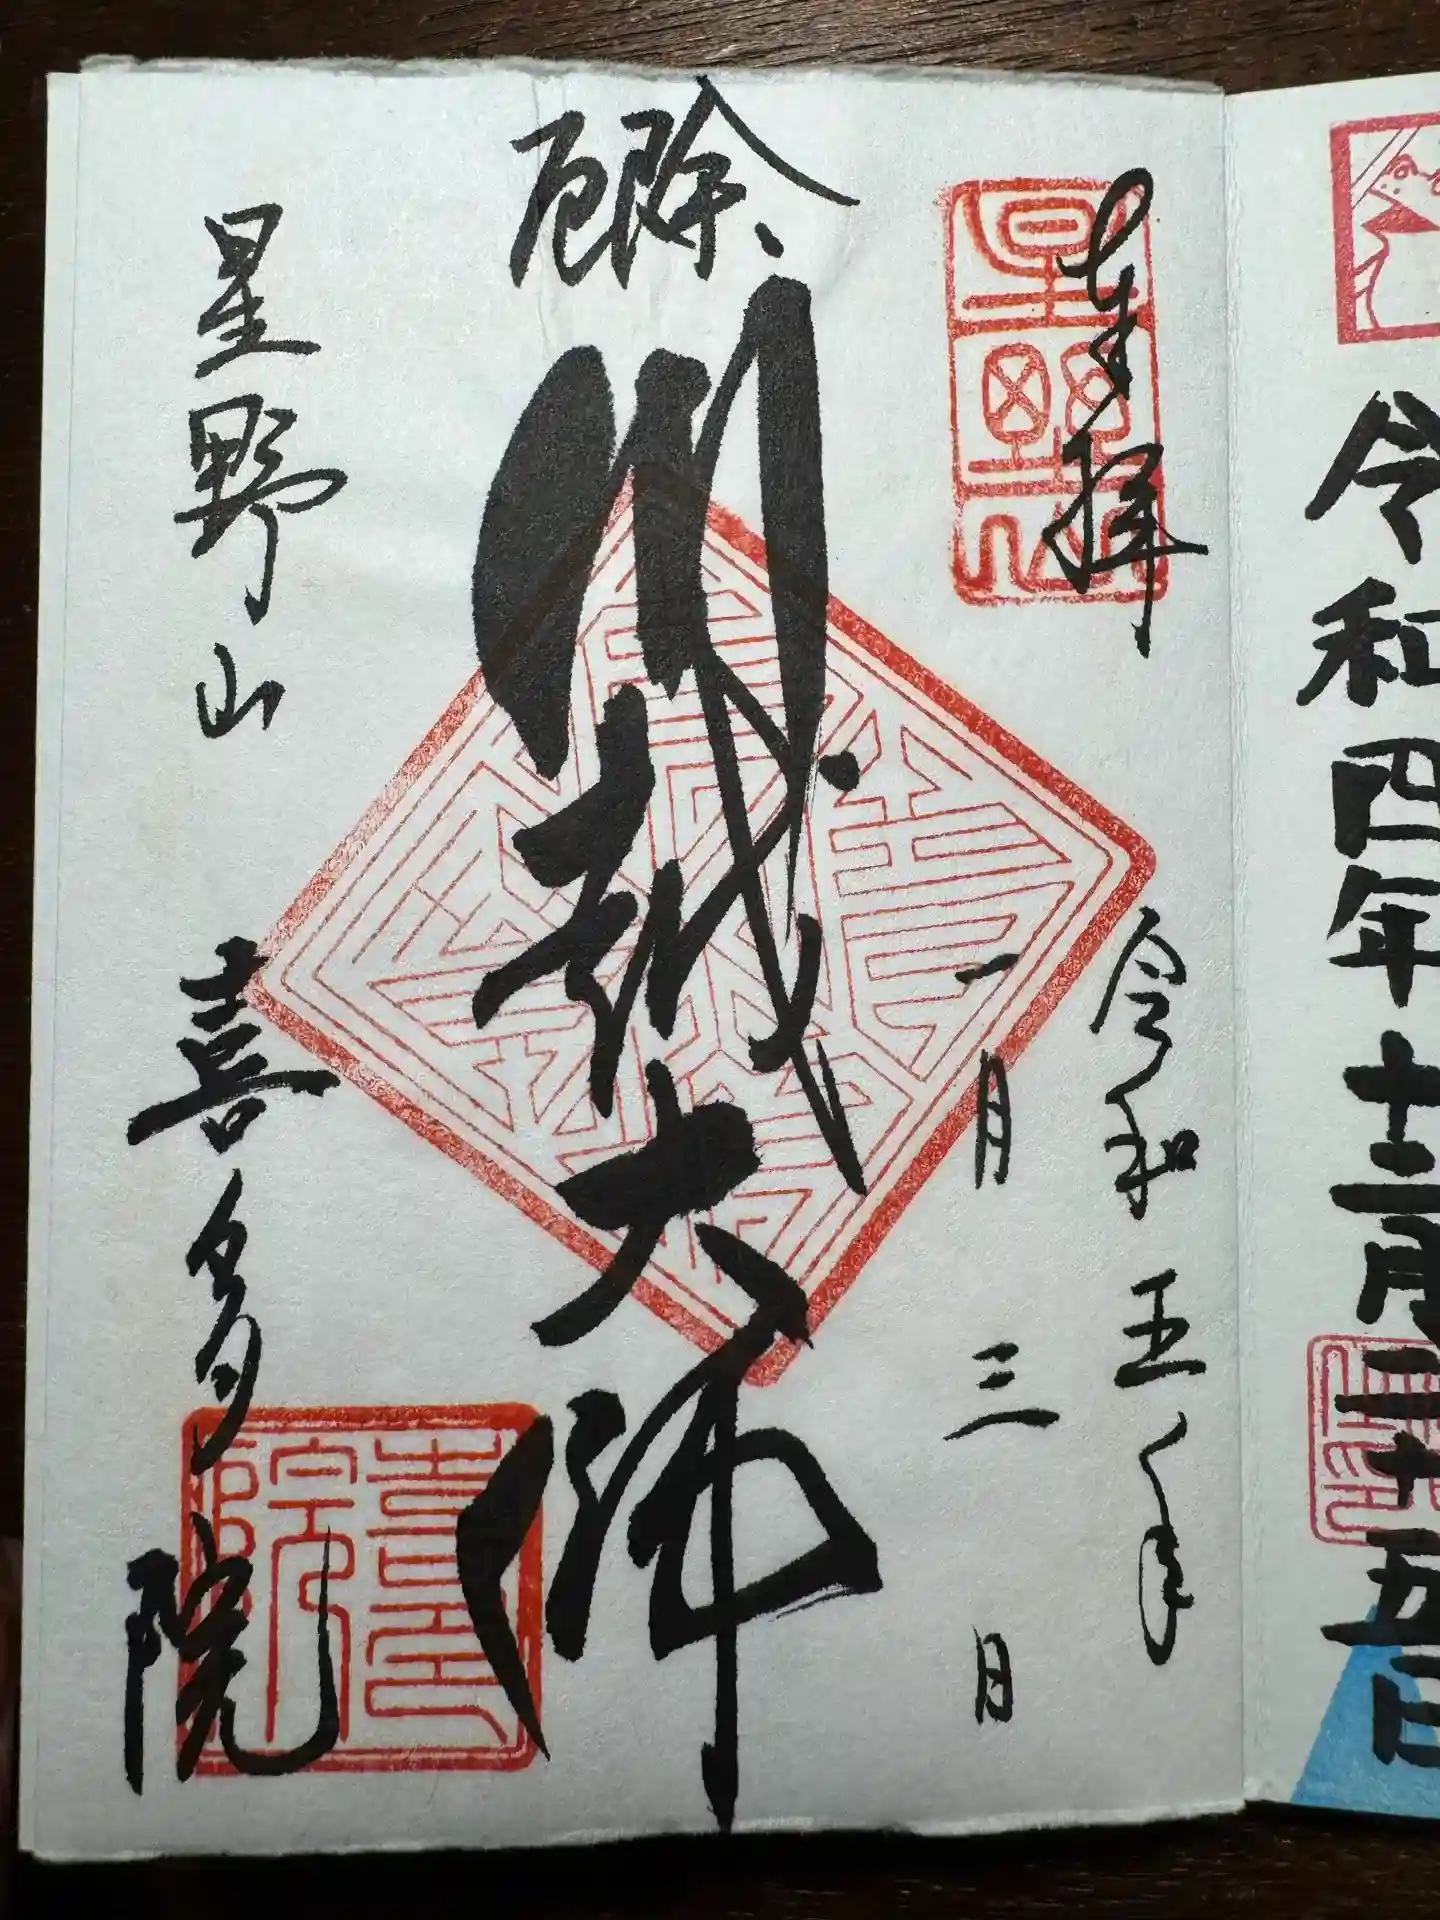 令和四年十二月二十五日
奉拝
星野山
令和五年
一月三日
厄除
川越大師
星野山
喜多院
喜多院